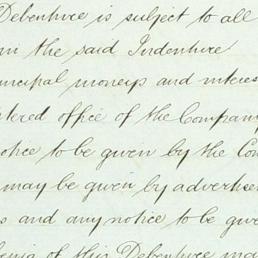 Debenture is subject to all
in the said Indenture
rincipal moneys and interes
stered office of the Company
otice to be given by the Com
may be given by advertise
s and any notice to be give
of this Debenture may